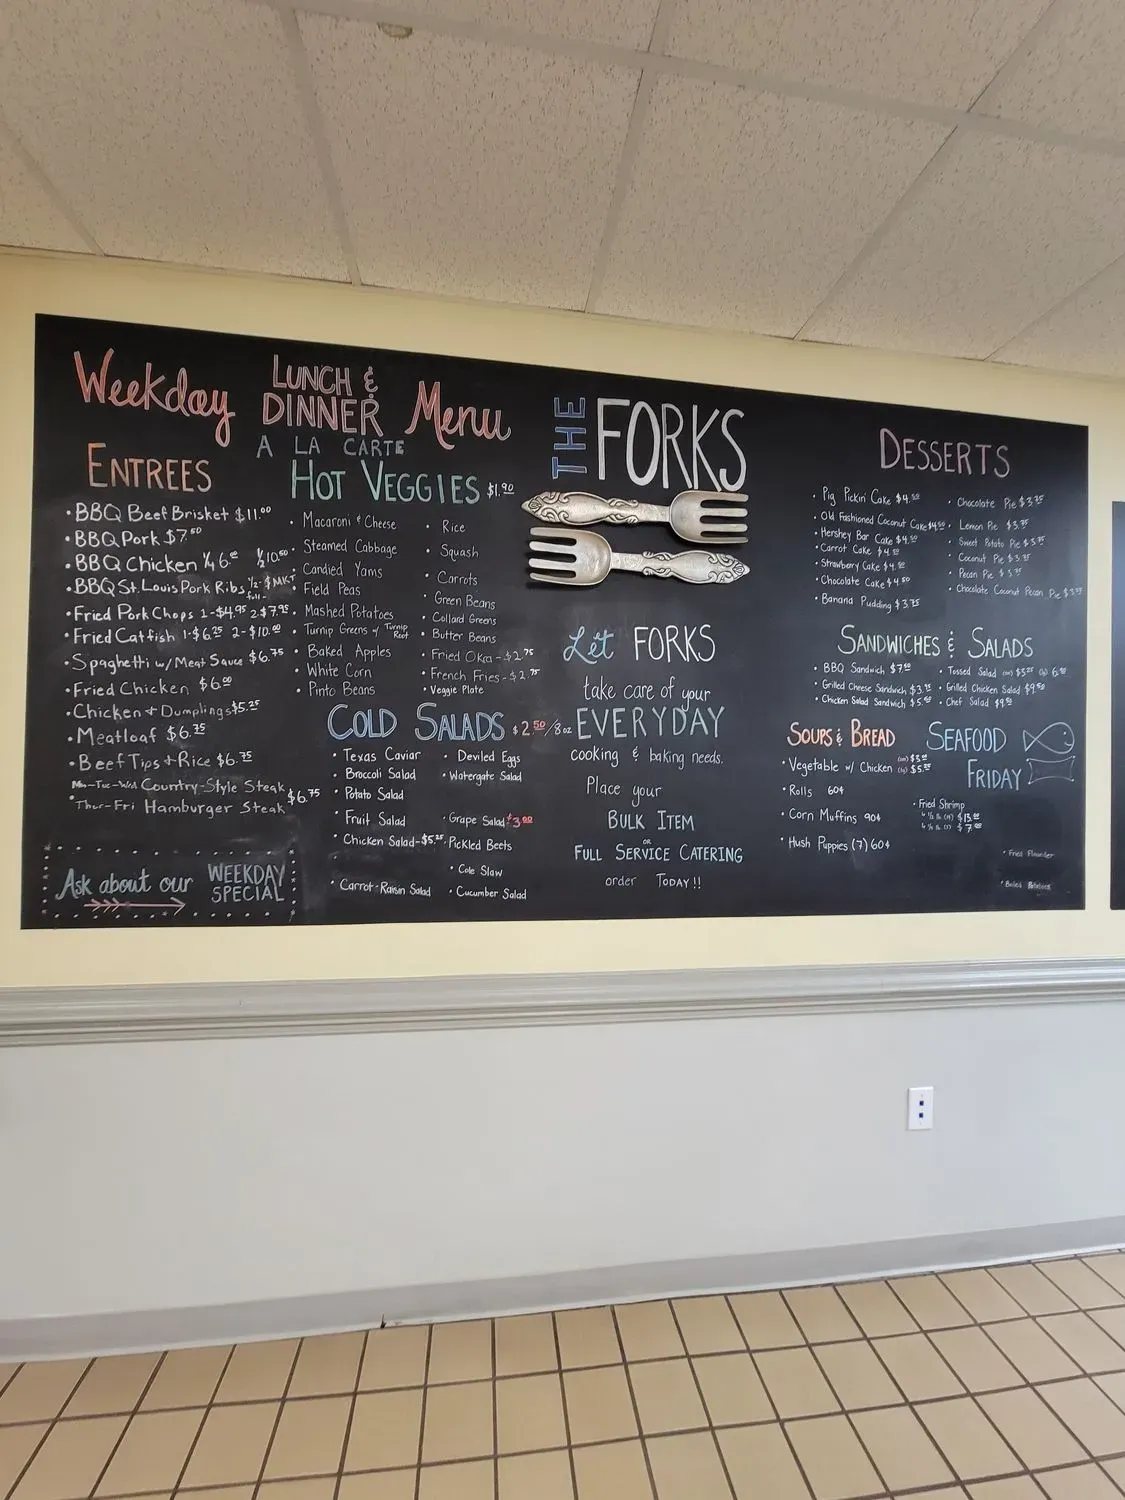 Weekday LUNCH & DINNER Menu
A LA CARTE
ENTREES
• BBQ Beef Brisket $11.00
• BBQ Pork $7.50
• BBQ Chicken ¼ 6.00 ½ 10.50
• BBQ St. Louis Pork Ribs ½- $MKT
full-
• Fried Pork Chops 1-$4.95 2-$7.95
• Fried Catfish 1-$6.25 2-$10.00
• Spaghetti w/ Meat Sauce $6.75
• Fried Chicken $6.00
• Chicken & Dumplings $5.25
• Meatloaf $6.75
• Beef Tips & Rice $6.75
Mon-Tue-Wed Country-Style Steak
Thur-Fri Hamburger Steak $6.75
Ask about our WEEKDAY SPECIAL
HOT VEGGIES $1.90
• Macaroni & Cheese
• Steamed Cabbage
• Candied Yams
• Field Peas
• Mashed Potatoes
• Turnip Greens w/ Turnip Root
• Baked Apples
• White Corn
• Pinto Beans
• Rice
• Squash
• Carrots
• Green Beans
• Collard Greens
• Butter Beans
• Fried Okra - $2.75
• French Fries - $2.75
• Veggie Plate
COLD SALADS $2.50/8oz
• Texas Caviar
• Broccoli Salad
• Potato Salad
• Fruit Salad
• Chicken Salad - $5.25
• Carrot-Raisin Salad
• Deviled Eggs
• Watergate Salad
• Grape Salad $3.00
• Pickled Beets
• Cole Slaw
• Cucumber Salad
THE FORKS
Let FORKS
take care of your
EVERYDAY
cooking & baking needs.
Place your
BULK ITEM
OR
FULL SERVICE CATERING
order TODAY!!
DESSERTS
• Pig Pickin' Cake $4.50
• Old Fashioned Coconut Cake $4.50
• Hershey Bar Cake $4.50
• Carrot Cake $4.50
• Strawberry Cake $4.50
• Chocolate Cake $4.50
• Banana Pudding $3.75
• Chocolate Pie $3.75
• Lemon Pie $3.75
• Sweet Potato Pie $3.75
• Coconut Pie $3.75
• Pecan Pie $3.75
• Chocolate Coconut Pecan Pie $3.75
SANDWICHES & SALADS
• BBQ Sandwich $7.00
• Grilled Cheese Sandwich
• Chicken Salad Sandwich
• Tossed Salad (sm) $3.25 (lg)
• Grilled Chicken Salad $9.50
• Chef Salad
SOUPS & BREAD
• Vegetable w/ Chicken (sm) (lg)
• Rolls 60¢
• Corn Muffins 90¢
• Hush Puppies (7) 60¢
SEAFOOD FRIDAY
• Fried Shrimp
• Fried Flounder
• Boiled Potatoes